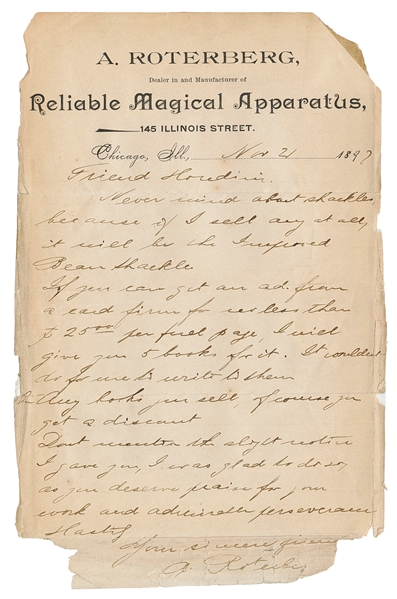 A. ROTERBERG,
Dealer in and Manufacturer of
Reliable Magical Apparatus,
145 ILLINOIS STREET.
Chicago, Ill., Nov 21 1897
Friend Houdini.
Never mind about shackles,
because if I sell any at all,
it will be the Improved
Bean Shackle
If you can get an ad. from
a card firm for no less than
$ 25.00 per full page, I will
give you 5 books for it. It wouldn't
do for me to write to them
Any books you sell, of course you
get a discount
Dont mention the slight notice
I gave you, I was glad to do so,
as you deserve praise for your
work and admirable perseverance
Hastily
Your sincere friend
A. Roterberg